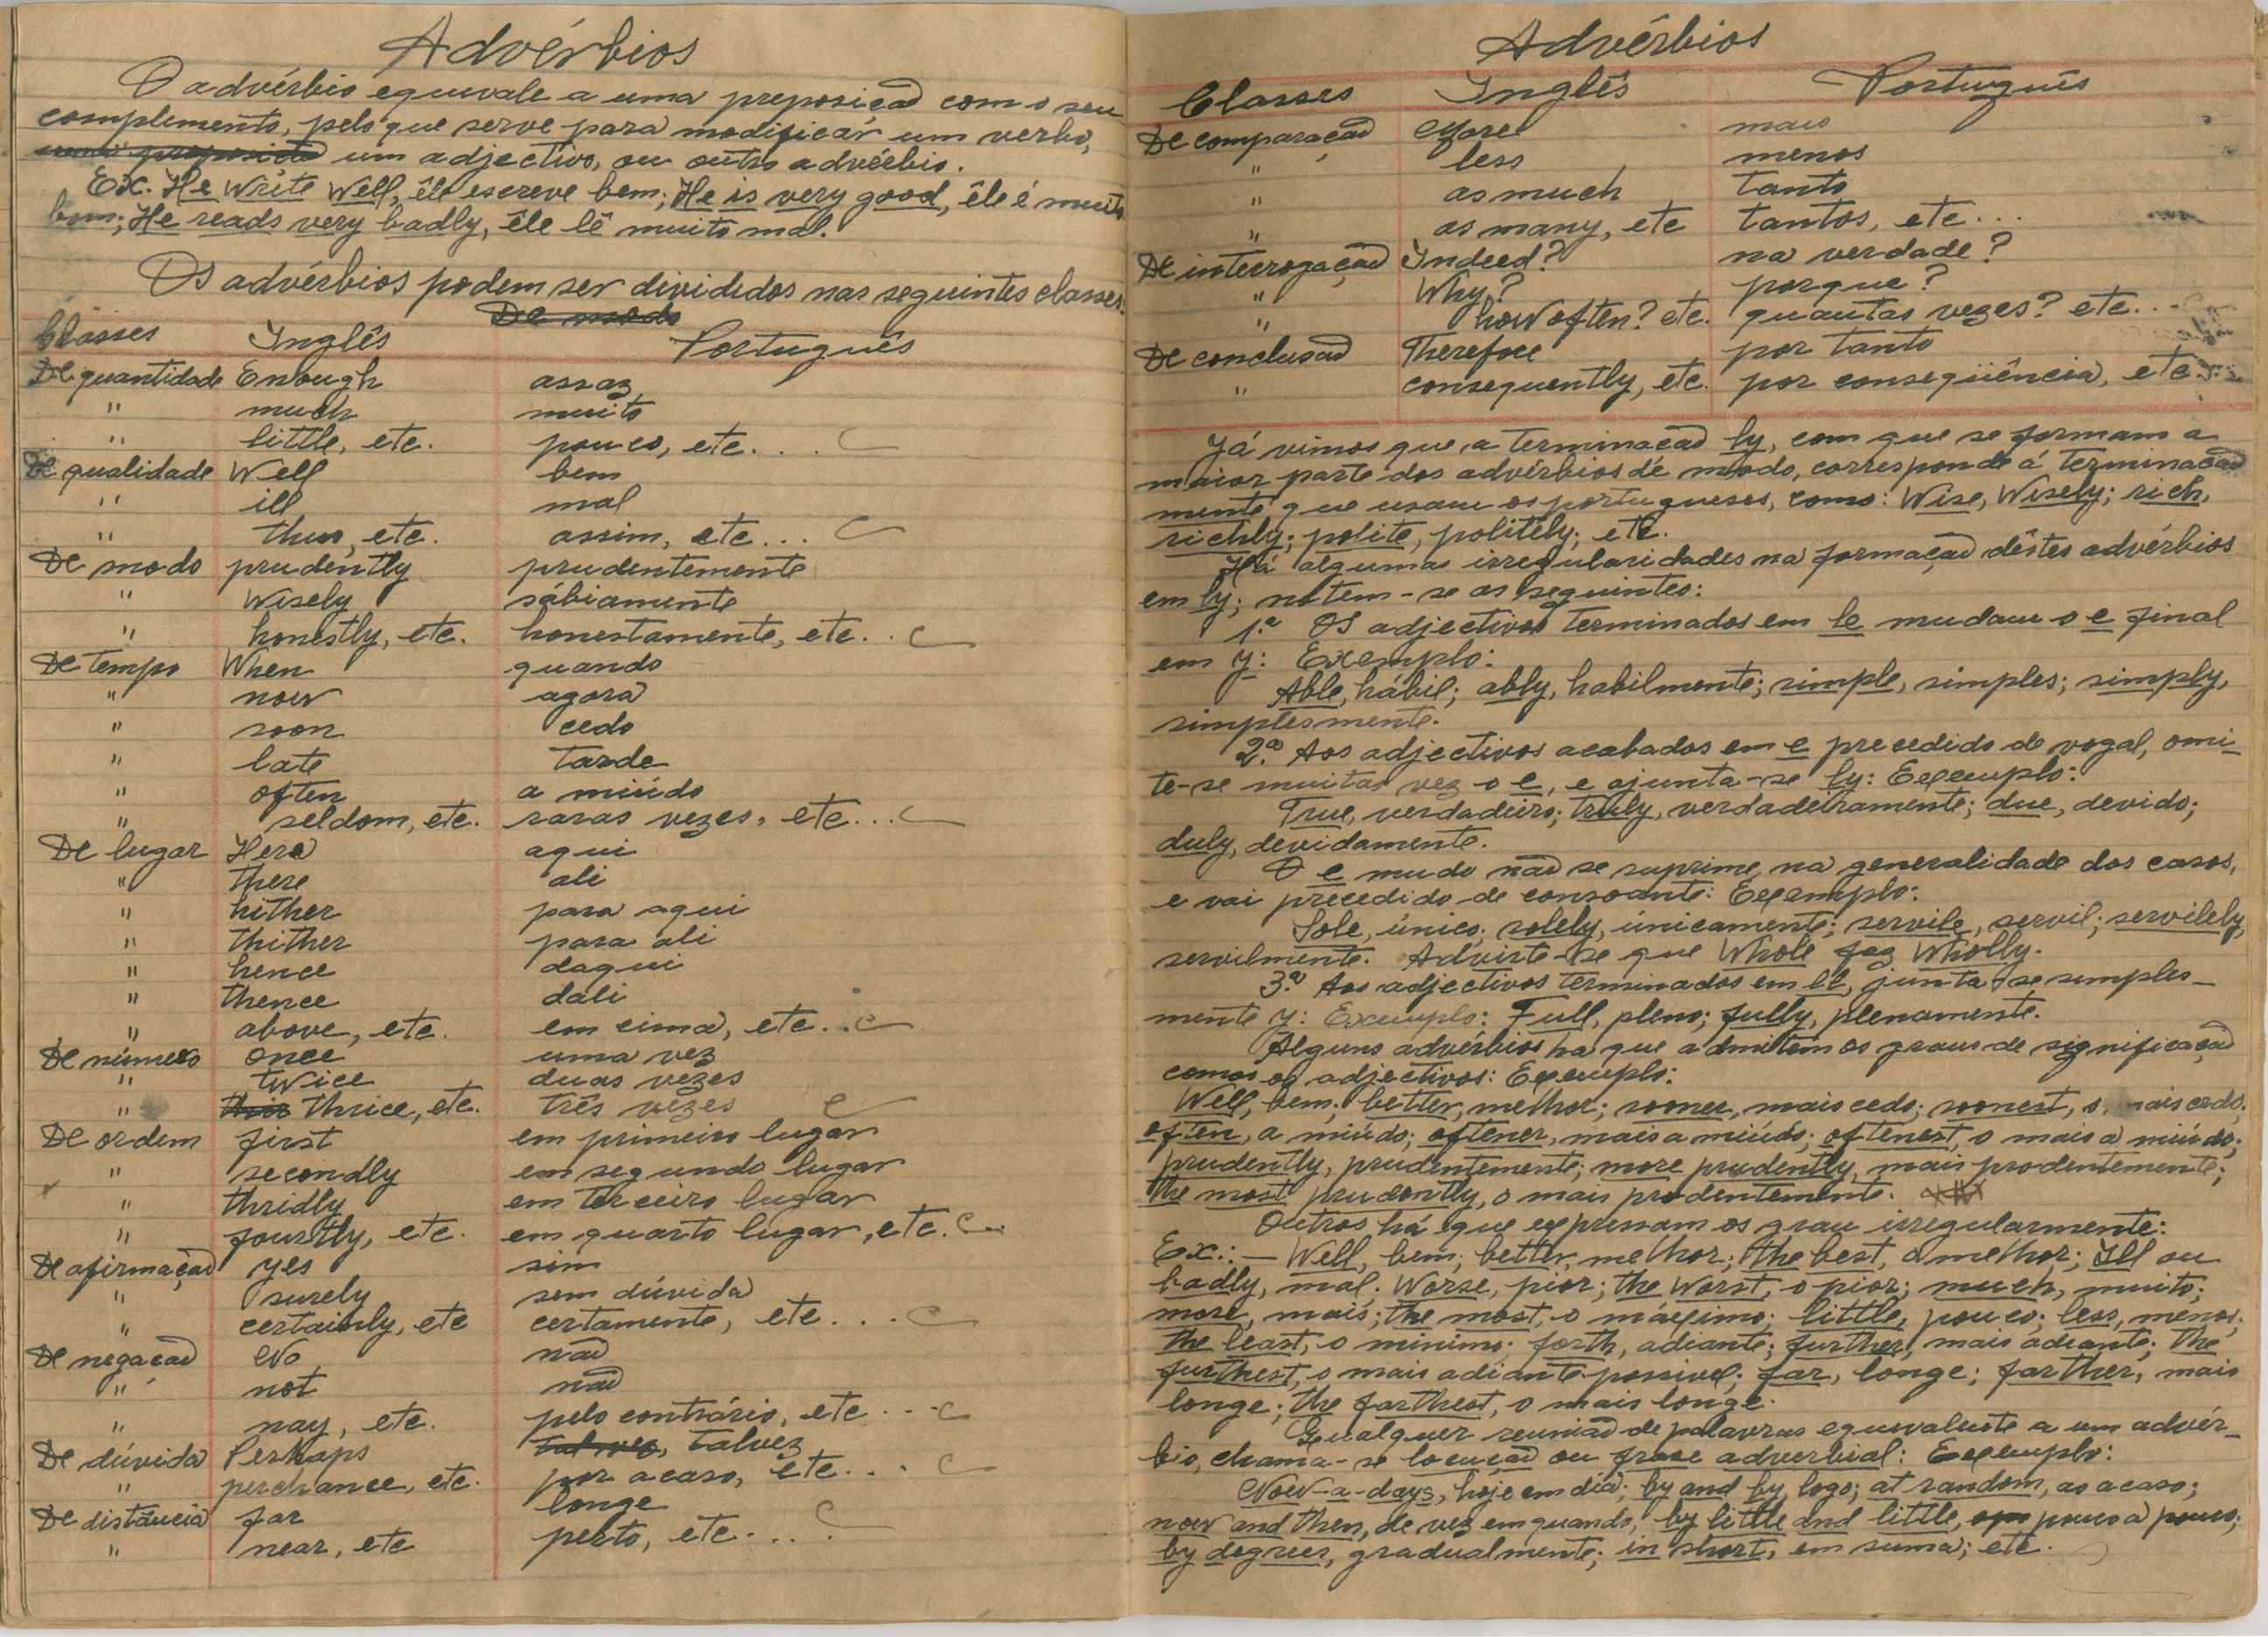 Advérbios
O advérbio equivale a uma preposição com o seu
complemento, pelo que serve para modificar um verbo,
um adjectivo, ou outro advérbio.
Ex. He write well, êle escreve bem; He is very good, êle é muito
bom; He reads very badly, êle lê muito mal.
Os advérbios podem ser divididos nas seguintes classes:
De modo
Classes Inglês Português
De quantidade Enough assaz
" much muito
" little, etc. pouco, etc...
De qualidade Well bem
" ill mal
" thus, etc. assim, etc...
De modo prudently prudentemente
" Wisely sábiamente
" honestly, etc. honestamente, etc..
De tempo When quando
" now agora
" soon cedo
" late tarde
" often a miúdo
" seldom, etc. raras vezes, etc...
De lugar Here aqui
" there ali
" hither para aqui
" thither para ali
" hence daqui
" thence dali
" above, etc. em cima, etc..
De número once uma vez
" twice duas vezes
" thrice, etc. três vezes
De ordem first em primeiro lugar
" secondly em segundo lugar
" thridly em terceiro lugar
" fourtly, etc. em quarto lugar, etc.
De afirmação yes sim
" surely sem dúvida
" certainly, etc certamente, etc...
De negação No não
" not não
" nay, etc. pelo contrário, etc...
De dúvida Perhaps talvez, talvez
" perchance, etc. por acaso, etc...
De distância far longe
" near, etc perto, etc...
Advérbios
Classes Inglês Português
De comparação More mais
" less menos
" as much tanto
" as many, etc tantos, etc...
De interrogação Indeed? na verdade?
" Why? porque?
" how often? etc. quantas vezes? etc...
De conclusão Therefore por tanto
" consequently, etc. por conseqüência, etc...
Já vimos que a terminação ly, com que se formam a
maior parte dos advérbios de modo, corresponde á terminação
mente que usam os portugueses, como: Wise, Wisely; rich,
richly; polite, politely; etc.
Há algumas irregularidades na formação dêstes advérbios
em ly; notem-se as seguintes:
1.ª Os adjectivos terminados em le mudam o e final
em y: Exemplo:
Able, hábil; ably, habilmente; simple, simples; simply,
simplesmente.
2.ª Aos adjectivos acabados em e precedido de vogal, omi-
te-se muitas vez o e, e ajunta-se ly: Exemplo:
True, verdadeiro; truly, verdadeiramente; due, devido;
duly, devidamente.
O e mudo não se suprime, na generalidade dos casos,
e vai precedido de consoante: Exemplo:
Sole, único; solely, únicamente; servile, servil; servilely,
servilmente. Advirte-se que Whole faz Wholly.
3.ª Aos adjectivos terminados em ll, junta-se simples-
mente y: Exemplo: Full, pleno; fully, plenamente.
Alguns advérbios ha que admitem os graus de significação
comos os adjectivos: Exemplo:
Well, bem; better, melhor; sooner, mais cedo; soonest, o mais cedo;
often, a miúdo; oftener, mais a miúdo; oftenest, o mais a miúdo;
prudently, prudentemente; more prudently, mais prodentemente;
the most prudently, o mais prodentemente.
Outros há que expressam os grau irregularmente:
Ex.: — Well, bem; better, melhor; the best, o melhor; Ill ou
badly, mal. Worse, pior; the Worst, o pior; much, muito;
more, mais; the most, o máximo; little, pouco; less, menos;
the least, o minimo; forth, adiante; further, mais adiante; the
furthest, o mais adiante possivel; far, longe; farther, mais
longe; the farthest, o mais longe.
Qualquer reunião de palavras equivalente a um advér-
bio, chama-se locução ou frase adverbial: Exemplo:
Now-a-days, hoje em dia; by and by, logo; at random, ao acaso;
now and then, de vez em quando; by little and little, pouco a pouco;
by degrees, gradualmente; in short, em suma; etc.